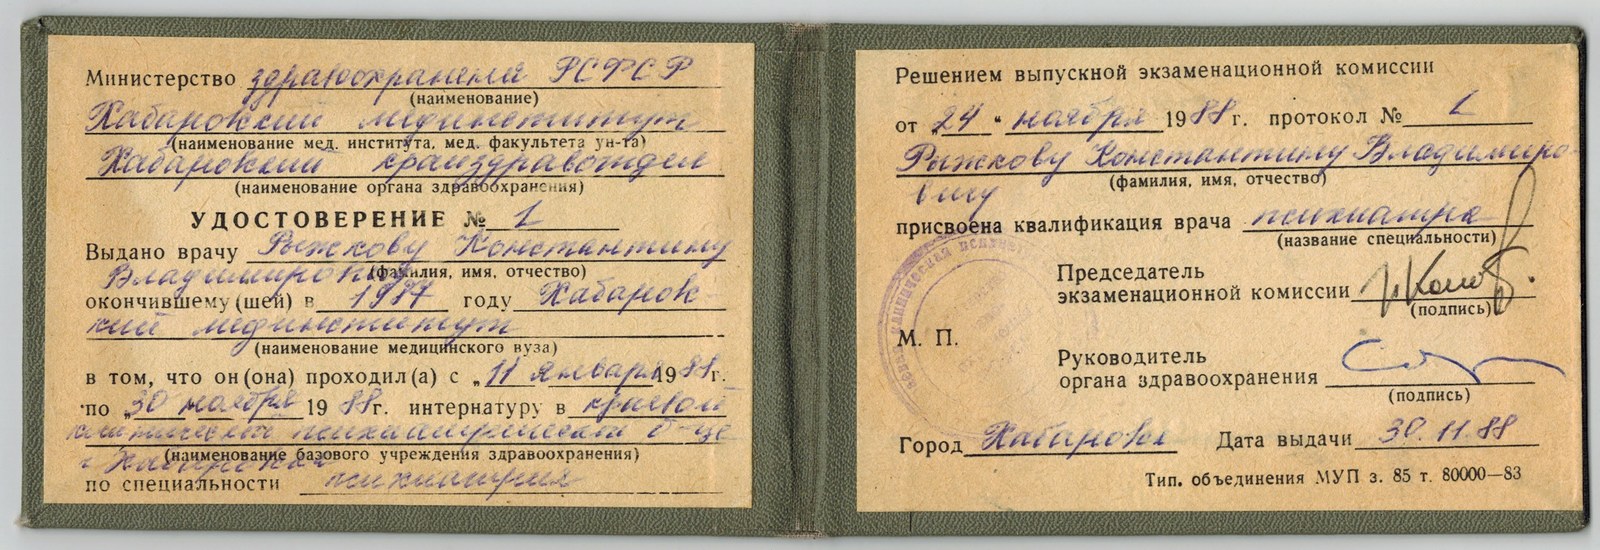 Министерство здравоохранения РСФСР
(наименование)
Хабаровский мединститут
(наименование мед. института, мед. факультета ун-та)
Хабаровский крайздравотдел
(наименование органа здравоохранения)
УДОСТОВЕРЕНИЕ № 1
Выдано врачу Рыжкову Константину
Владимировичу
(фамилия, имя, отчество)
окончившему (шей) в 1987 году Хабаровс-
кий мединститут
(наименование медицинского вуза)
в том, что он (она) проходил (а) с „11 января 1988 г.
по „30 ноября 1988 г. интернатуру в краевой
клинической психиатрической б-це
(наименование базового учреждения здравоохранения)
г. Хабаровска
по специальности психиатрия
Решением выпускной экзаменационной комиссии
от 24 " ноября 1988 г. протокол № 1
Рыжкову Константину Владимиро-
вичу
(фамилия, имя, отчество)
присвоена квалификация врача психиатра
(название специальности)
Председатель
экзаменационной комиссии
(подпись)
М. П.
Руководитель
органа здравоохранения
(подпись)
Город Хабаровск Дата выдачи 30.11.88
Тип. объединения МУП з. 85 т. 80000—83